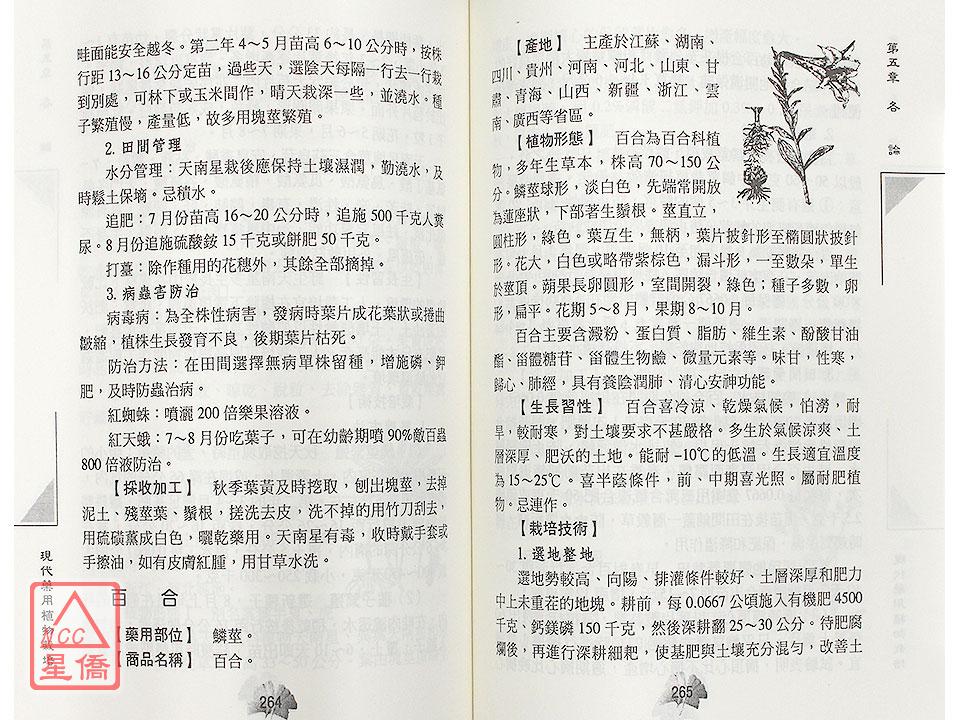 畦面能安全越冬。第二年 4～5 月苗高 6～10 公分時，按株
行距 13～16 公分定苗，過些天，選陰天每隔一行去一行栽
到別處，可林下或玉米間作，晴天栽深一些，並澆水。種
子繁殖慢，產量低，故多用塊莖繁殖。
2. 田間管理
水分管理：天南星栽後應保持土壤濕潤，勤澆水，及
時鬆土保墒。忌積水。
追肥：7 月份苗高 16～20 公分時，追施 500 千克人糞
尿。8 月份追施硫酸銨 15 千克或餅肥 50 千克。
打薹：除作種用的花穗外，其餘全部摘掉。
3. 病蟲害防治
病毒病：為全株性病害，發病時葉片成花葉狀或捲曲
皺縮，植株生長發育不良，後期葉片枯死。
防治方法：在田間選擇無病單株留種，增施磷、鉀
肥，及時防蟲治病。
紅蜘蛛：噴灑 200 倍樂果溶液。
紅天蛾：7～8 月份吃葉子，可在幼齡期噴 90%敵百蟲
800 倍液防治。
【採收加工】 秋季葉黃及時挖取，刨出塊莖，去掉
泥土、殘莖葉、鬚根，搓洗去皮，洗不掉的用竹刀刮去，
用硫磺薰成白色，曬乾藥用。天南星有毒，收時戴手套或
手擦油，如有皮膚紅腫，用甘草水洗。
百 合
【藥用部位】 鱗莖。
【商品名稱】 百合。
264
現代藥用植物栽培
ACC
星僑
【產地】 主產於江蘇、湖南、
四川、貴州、河南、河北、山東、甘
肅、青海、山西、新疆、浙江、雲
南、廣西等省區。
【植物形態】 百合為百合科植
物，多年生草本，株高 70～150 公
分。鱗莖球形，淡白色，先端常開放
為蓮座狀，下部著生鬚根。莖直立，
圓柱形，綠色。葉互生，無柄，葉片披針形至橢圓狀披針
形。花大，白色或略帶紫棕色，漏斗形，一至數朵，單生
於莖頂。蒴果長卵圓形，室間開裂，綠色；種子多數，卵
形，扁平。花期 5～8 月，果期 8～10 月。
百合主要含澱粉、蛋白質、脂肪、維生素、酚酸甘油
酯、甾體糖苷、甾體生物鹼、微量元素等。味甘，性寒，
歸心、肺經，具有養陰潤肺、清心安神功能。
【生長習性】 百合喜冷涼、乾燥氣候，怕澇，耐
旱，較耐寒，對土壤要求不甚嚴格。多生於氣候涼爽、土
層深厚、肥沃的土地。能耐 –10℃的低溫。生長適宜溫度
為 15～25℃。喜半蔭條件，前、中期喜光照。屬耐肥植
物。忌連作。
【栽培技術】
1. 選地整地
選地勢較高、向陽、排灌條件較好、土層深厚和肥力
中上未重茬的地塊。耕前，每 0.0667 公頃施入有機肥 4500
千克、鈣鎂磷 150 千克，然後深耕翻 25～30 公分。待肥腐
爛後，再進行深耕細耙，使基肥與土壤充分混勻，改善土
265
第五章 各 論